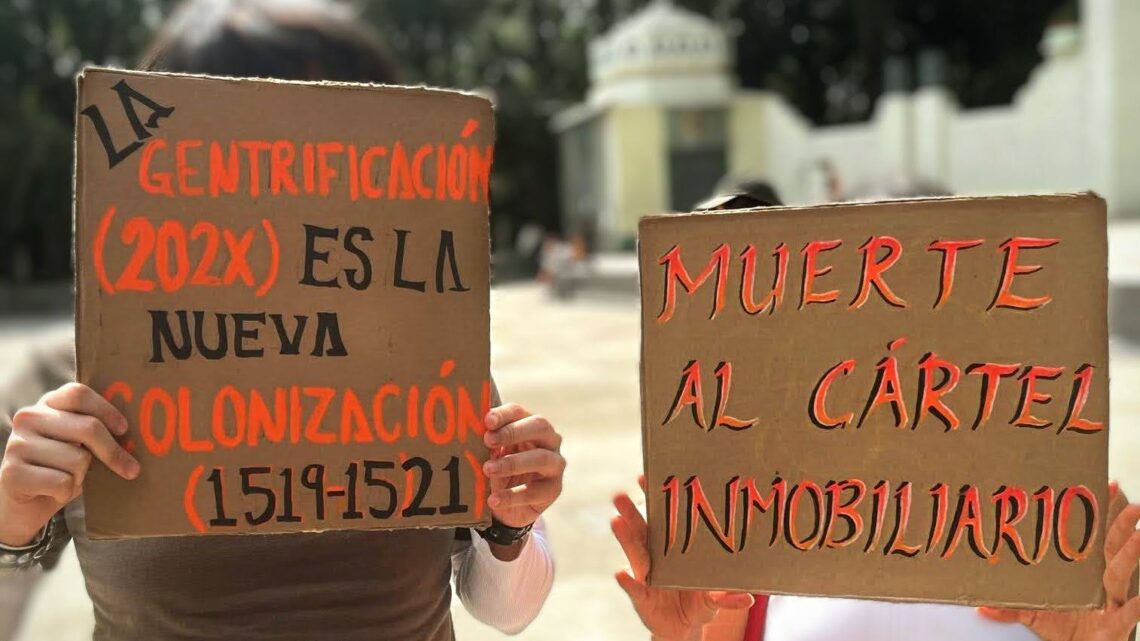 LA
GENTRIFICACIÓN
(202X) ES LA
NUEVA
COLONIZACIÓN
(1519-1521)
MUERTE
AL CÁRTEL
INMOBILIARIO